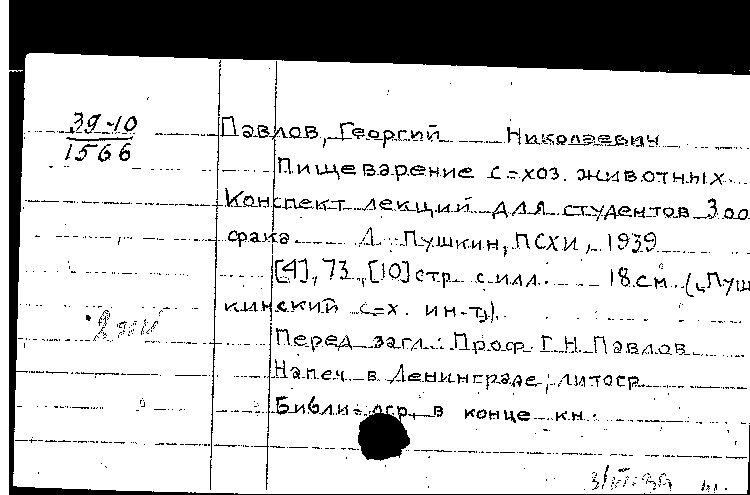 39-10
1566
Павлов, Георгий Николаевич
Пищеварение с=хоз. животных.
Конспект лекций для студентов Зоо
фака Л. Пушкин, ПСХИ, 1939
[4], 73, [10] стр. с илл. 18 см. („Пуш
кинский с=х. ин-т").
Перед загл.: Проф. Г.Н. Павлов
Напеч. в Ленинграде, литогр.
Библиогр. в конце кн.